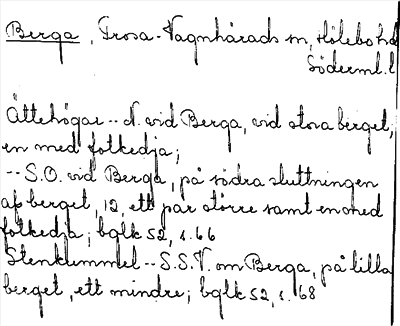 Berga, Trosa-Vagnhärads sn, Hölebo hd
Söderml. l
Ättehögar -- N. vid Berga, vid stora berget,
en med fotkedja;
-- S.O. vid Berga, på södra sluttningen
af berget, 12, ett par större samt en med
fotkedja; bglk 52, s. 66
Stenkummel -- S.S.V. om Berga, på lilla
berget, ett mindre; bglk 52, s. 68